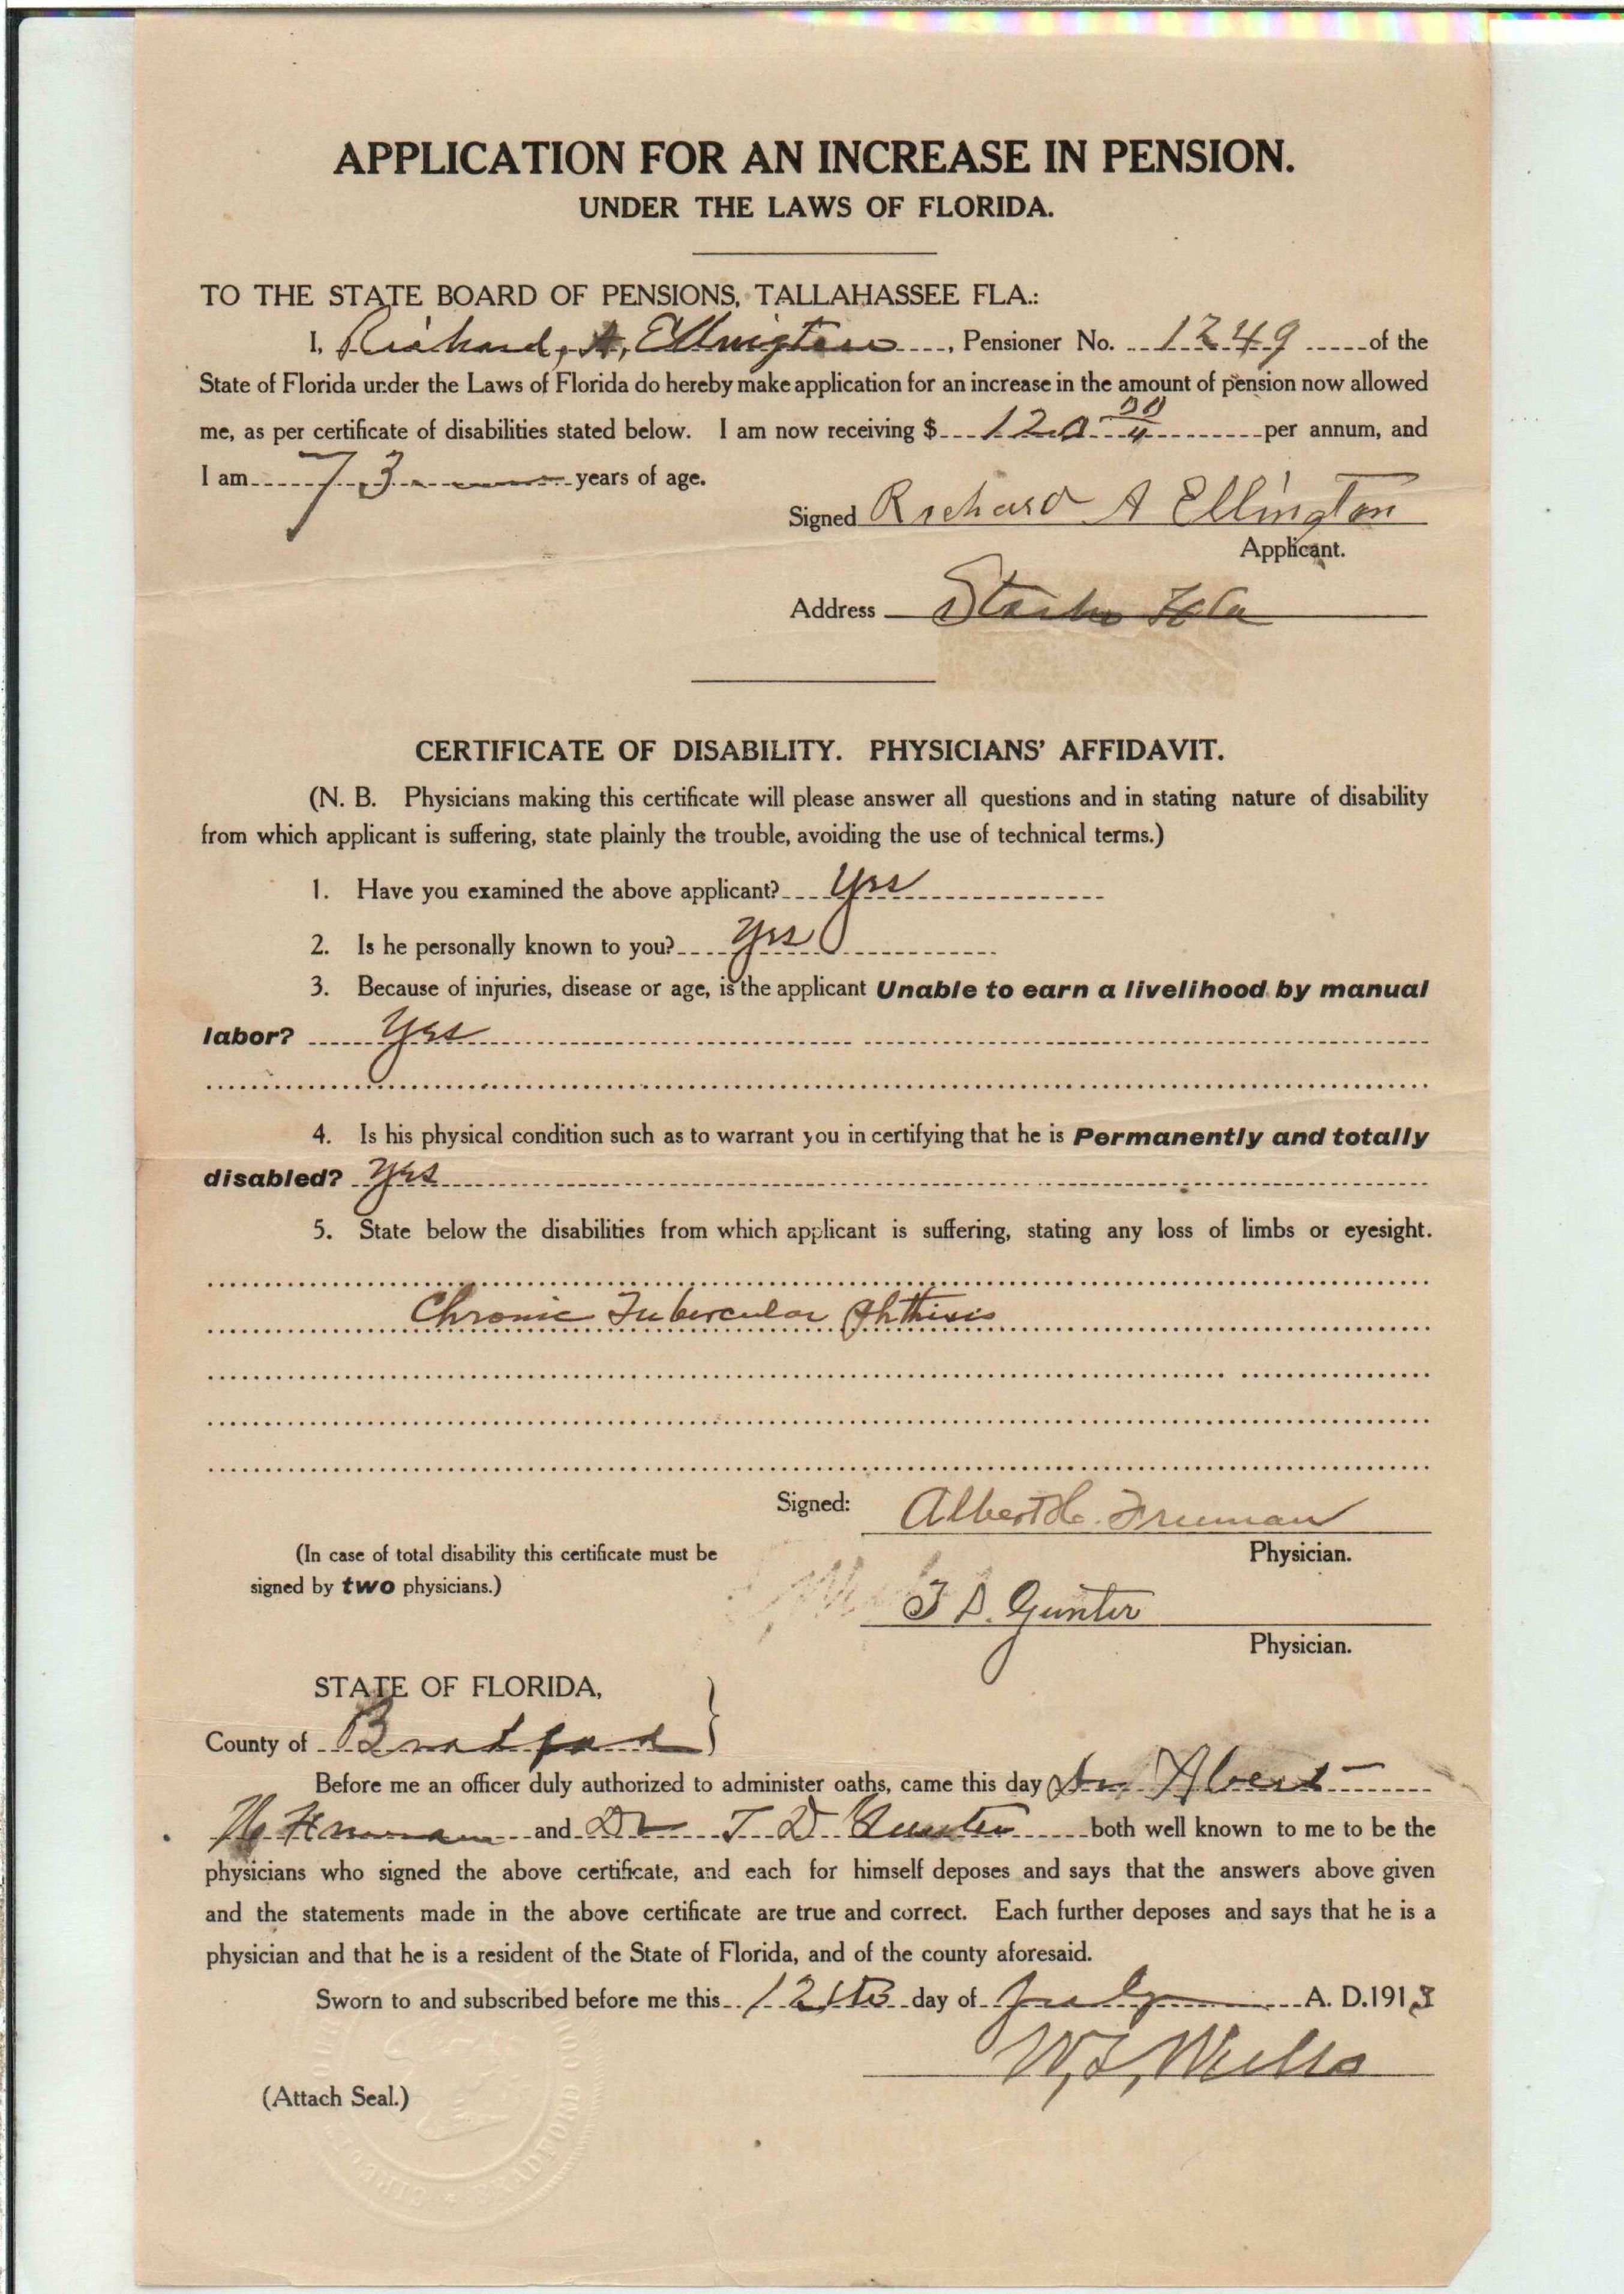 APPLICATION FOR AN INCREASE IN PENSION.
UNDER THE LAWS OF FLORIDA.
TO THE STATE BOARD OF PENSIONS, TALLAHASSEE FLA.:
I, Richard, A, Ellington, Pensioner No. 1249 of the
State of Florida under the Laws of Florida do hereby make application for an increase in the amount of pension now allowed
me, as per certificate of disabilities stated below. I am now receiving $ 120 per annum, and
I am 73 years of age.
Signed Richard A Ellington
Applicant.
Address Starke Fla
CERTIFICATE OF DISABILITY. PHYSICIANS' AFFIDAVIT.
(N. B. Physicians making this certificate will please answer all questions and in stating nature of disability
from which applicant is suffering, state plainly the trouble, avoiding the use of technical terms.)
1. Have you examined the above applicant? Yes
2. Is he personally known to you? Yes
3. Because of injuries, disease or age, is the applicant Unable to earn a livelihood by manual
labor? Yes
4. Is his physical condition such as to warrant you in certifying that he is Permanently and totally
disabled? Yes
5. State below the disabilities from which applicant is suffering, stating any loss of limbs or eyesight.
Chronic Tubercular Phthisis
Signed: Albert H. Freeman
(In case of total disability this certificate must be Physician.
signed by two physicians.)
T D. Gunter
Physician.
STATE OF FLORIDA,
County of Bradford }
Before me an officer duly authorized to administer oaths, came this day Dr Albert
H Freeman and Dr T. D. Gunter both well known to me to be the
physicians who signed the above certificate, and each for himself deposes and says that the answers above given
and the statements made in the above certificate are true and correct. Each further deposes and says that he is a
physician and that he is a resident of the State of Florida, and of the county aforesaid.
Sworn to and subscribed before me this 12th day of July A. D. 1913
W, Wills
(Attach Seal.)
CIRCUIT BRADFORD